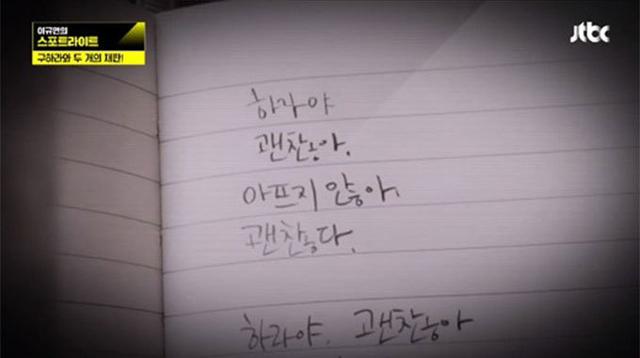 이규연의
스포트라이트
구하라와 두 개의 재판!
jtbc
하라야
괜찮아.
아프지 않아.
괜찮다.
하라야. 괜찮아